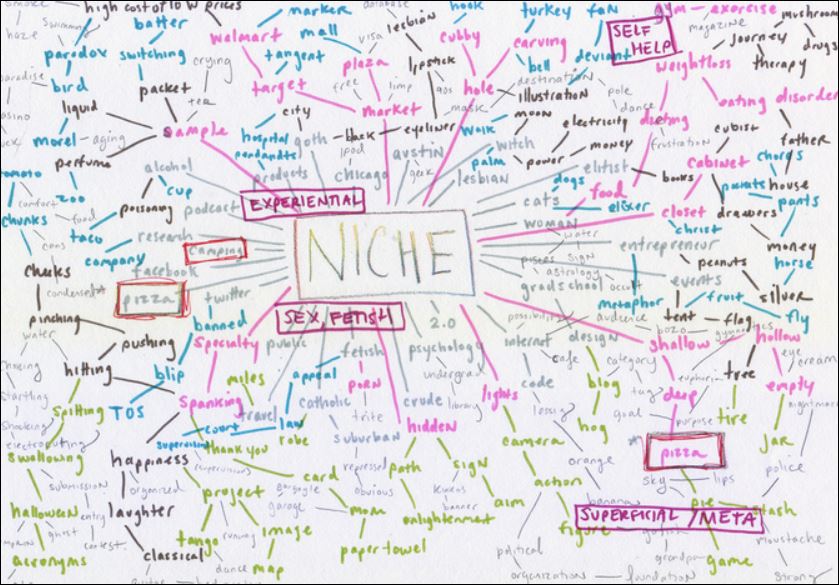 smoke
high cost of low prices
marker
database
lesbian
hook
turkey
fan
gym - exercise
mushroom
haze
swimming
batter
walmart
mall
visa
cubby
carving
SELF HELP
magazine
journey
drugs
paradox
switching
crying
tangent
plaza
lipstick
bell
deviant
weightloss
therapy
paradise
bird
packet
target
free
limp
hole
destination
illustration
pole
dance
eating disorder
liquid
tea
market
mask
moon
dieting
morel
aging
sample
city
hospital
goth
black
eyeliner
walk
electricity
cubist
father
perfume
pendants
ipod
austin
witch
money
frustration
cabinet
chords
alcohol
products
chicago
geek
lesbian
palm
power
elitist
books
parents
house
zoo
cup
EXPERIENTIAL
dogs
food
pants
comfort
food
poisoning
podcast
cats
elixer
closet
drawers
chunks
taco
research
camping
NICHE
woman
water
christ
money
company
facebook
pisces
sign
entrepreneur
horse
cheeks
astrology
peanuts
condensed
pizza
twitter
gradschool
occult
events
silver
banned
SEX FETISH
metaphor
fruit
pinching
2.0
possibility
audience
tent
flag
fly
water
pushing
specialty
public
fetish
psychology
internet
design
bozo
gymnastics
shallow
hollow
hitting
blip
miles
appeal
porn
undergrad
cafe
category
euphoria
tree
eye
cream
spitting
TOS
spanking
travel
catholic
trite
crude
library
lights
code
blog
tug
deep
empty
startling
court
law
hidden
lessig
goal
purpose
tire
nightmare
shocking
supervision
thank you
robe
suburban
camera
hog
jar
electrocuting
swallowing
happiness
supervisors
repressed
path
sign
orange
pizza
police
submission
organized
project
card
gargoyle
obvious
action
sky
lips
halloween
entry
laughter
garage
mom
enlightenment
banner
aim
banana
pie
stash
ghost
contest
tango
running
image
figure
SUPERFICIAL/META
moustache
acronyms
classical
dance
map
paper towel
political
grandpa
game
organization
foundation
strong